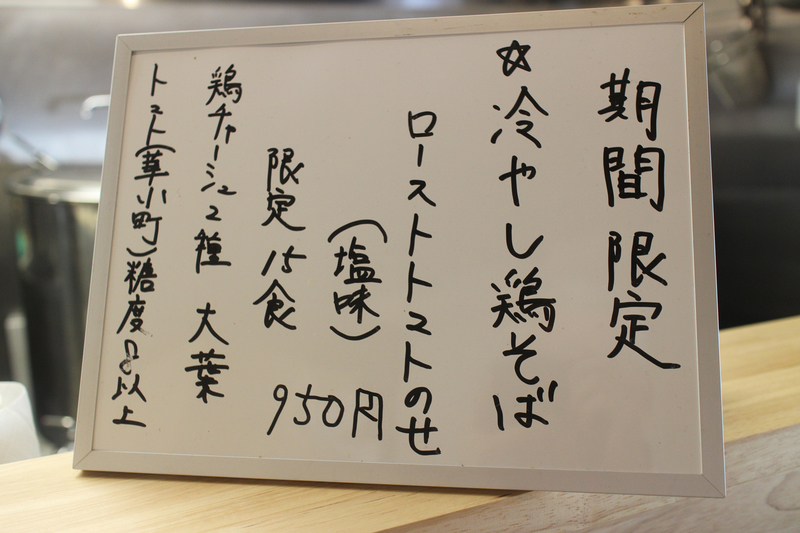 期間限定
☆冷やし鶏そば
ローストトマトのせ
(塩味)
限定15食
950円
鶏チャーシュー2種 大葉
トマト(華小町)糖度8以上